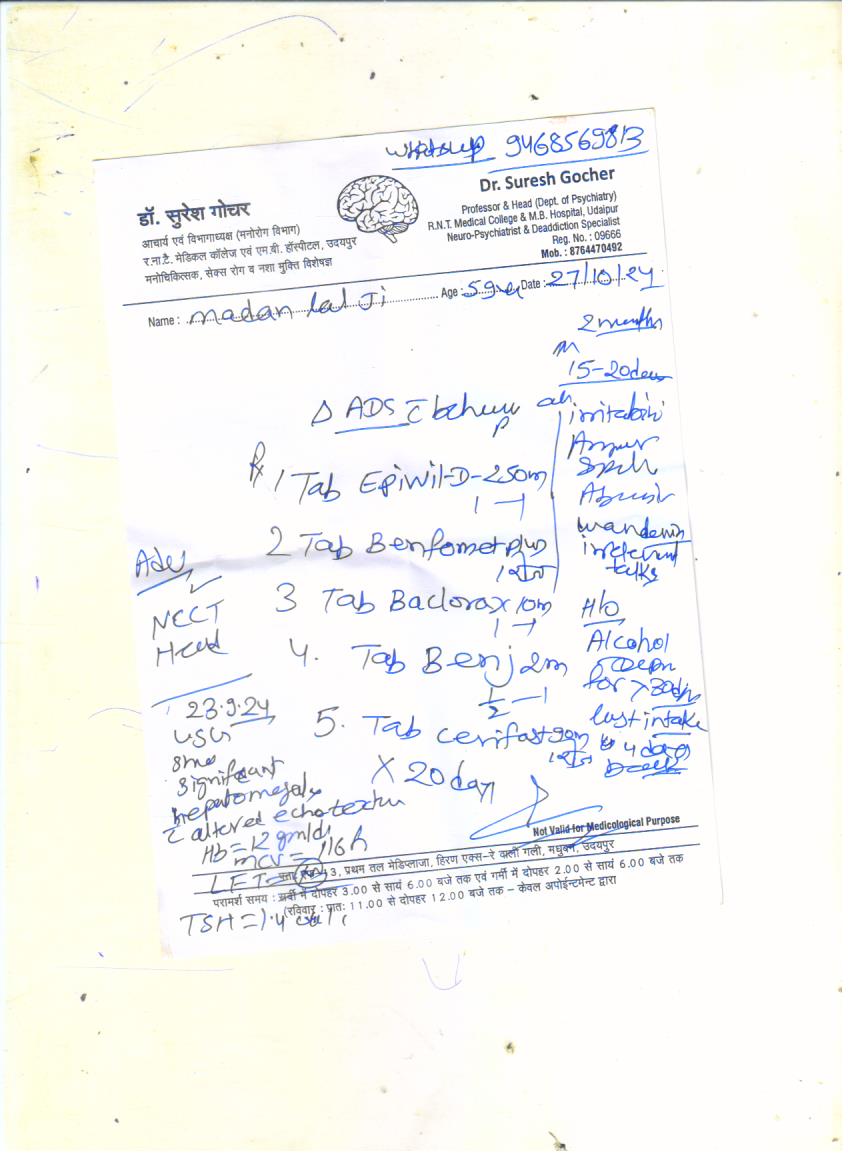 Whatsup 9468569813
डॉ. सुरेश गोचर
आचार्य एवं विभागाध्यक्ष (मनोरोग विभाग)
र.ना.टै. मेडिकल कॉलेज एवं एम.बी. हॉस्पीटल, उदयपुर
मनोचिकित्सक, सेक्स रोग व नशा मुक्ति विशेषज्ञ
Dr. Suresh Gocher
Professor & Head (Dept. of Psychiatry)
R.N.T. Medical College & M.B. Hospital, Udaipur
Neuro-Psychiatrist & Deaddiction Specialist
Reg. No. : 09666
Mob. : 8764470492
Name : madan lal Ji Age : 59 Date : 27/10/24
2 months
15-20
Δ ADS
Rx 1 Tab Epiwil-D-250m
1 - 1
2 Tab Benfomet plus
3 Tab Baclorax 10m
1 - 1
4. Tab Benj 2m
1/2 - 1
5. Tab
X 20 day
irritabi
Spell
wanderin
irrelevant
talks
H/o
Alcohol
for >30
last intake
4 days
Adv
NCCT
Head
23.9.24
USG
significant
hepatomegaly
altered echotextu
Hb = 12 gm/dl
MCV = 116 fl
LFT
TSH = 1.4
Not Valid for Medicological Purpose
3, प्रथम तल मेडिप्लाजा, हिरण एक्स-रे वाली गली, मधुबन, उदयपुर
परामर्श समय : सर्दी में दोपहर 3.00 से सायं 6.00 बजे तक एवं गर्मी में दोपहर 2.00 से सायं 6.00 बजे तक
(रविवार : प्रातः 11.00 से दोपहर 12.00 बजे तक – केवल अपोईन्टमेन्ट द्वारा